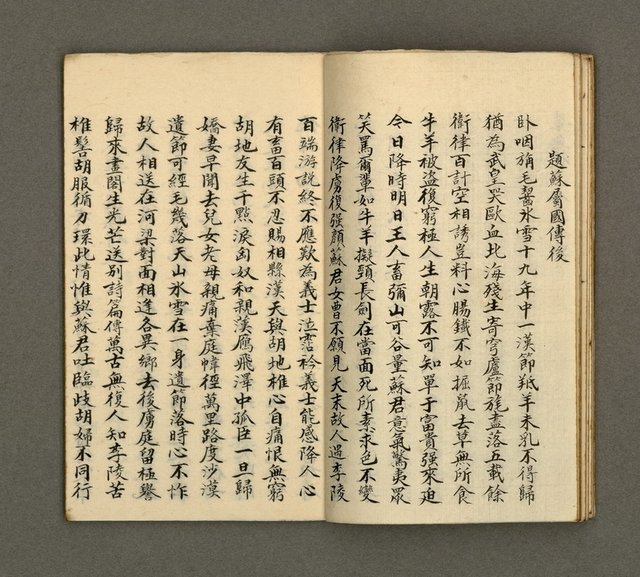 題蘇屬國傳後
卧咽旃毛齧氷雪十九年中一漢節羝羊未乳不得歸
猶為武皇哭歐血北海殘生寄穹廬節旄盡落五載餘
衛律百計空相誘豈料心腸鐵不如掘鼠去草無所食
牛羊被盜復窮極人生朝露不可知單于富貴強來迫
今日降時明日王人畜彌山可谷量蘇君意氣驚夷眾
笑罵爾輩如牛羊擬頸長劍在當面死所素求色不變
衛律降虜復強顏蘇君女曹不願見天末故人遇李陵
百端游說終不應歎為義士泣霑衿義士能感降人心
有畜百頭不忍賜相縣漢天與胡地椎心自痛恨無窮
胡地友生千點淚匈奴和親漢鴈飛澤中孤臣一旦歸
嬌妻早聞去兒女老母親痛棄庭幃徑萬里路度沙漠
遺節可經毛幾落天山氷雪在一身遺節落時心不怍
故人相送在河梁對面相逢各異鄉去後虜庭留極譽
歸來畫閣生光芒送別詩篇傳萬古無復人知李陵苦
椎髻胡服循刀環此情惟與蘇君吐臨歧胡婦不同行